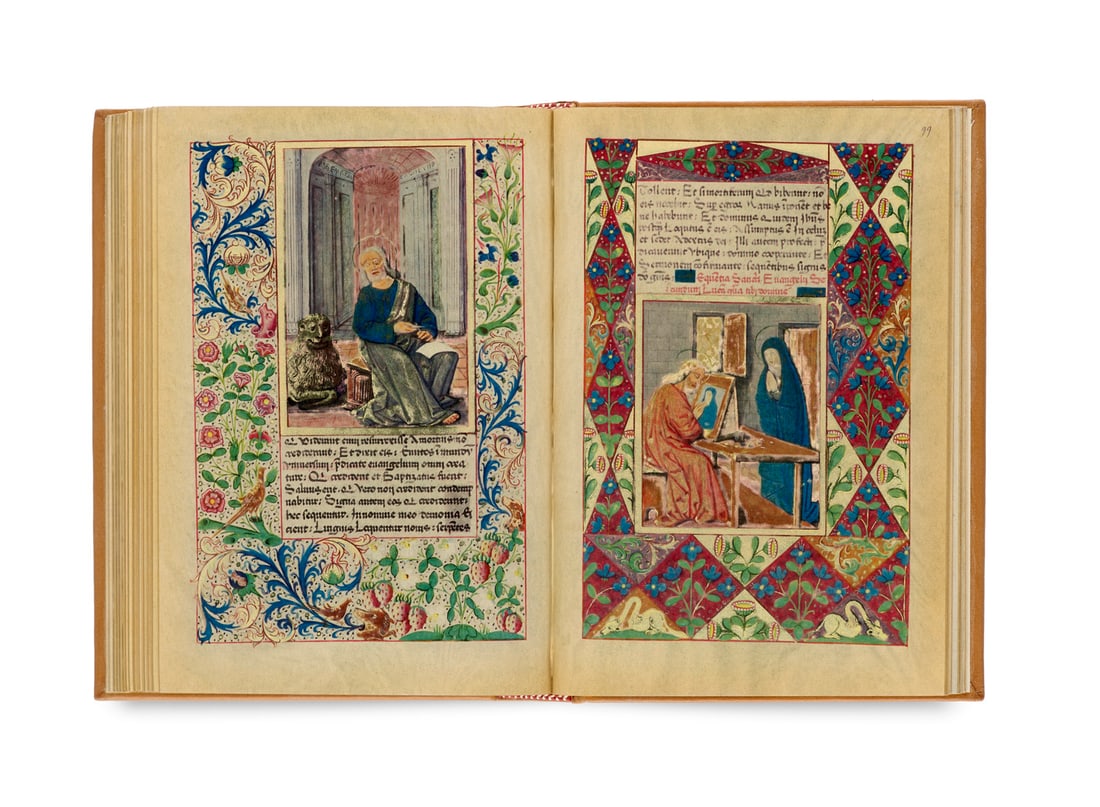 Qi Viderant eum resurrexisse A mortuis no
crediderunt: Et dixit eis: Euntes i mundu
Vniuersum: predicate euangelium omni crea
ture: Qi crediderit et Baptizatus fuerit:
Saluus erit. Qi Vero non crediderit condemp
nabitur: Signa autem eos Qi crediderint:
hec sequentur. Innomine meo demonia Ei
cient: Linguis Loquentur nouis: serpetes
99
Tollent: Et simortiferum Qd biberint: no
eis nocebit: Sup egros Manus iponet et be
ne habebunt: Et dominus Quidem Ihus
postq Loqutus e eis: Assumptus e In celu
et sedet Adextris dei Illi autem profecti: p
dicauerunt Vbique: domino cooperante: Et
Sermonem cofirmante: sequetibus signis
Sequetia Sancti Euangelii Se
cundum Lucam